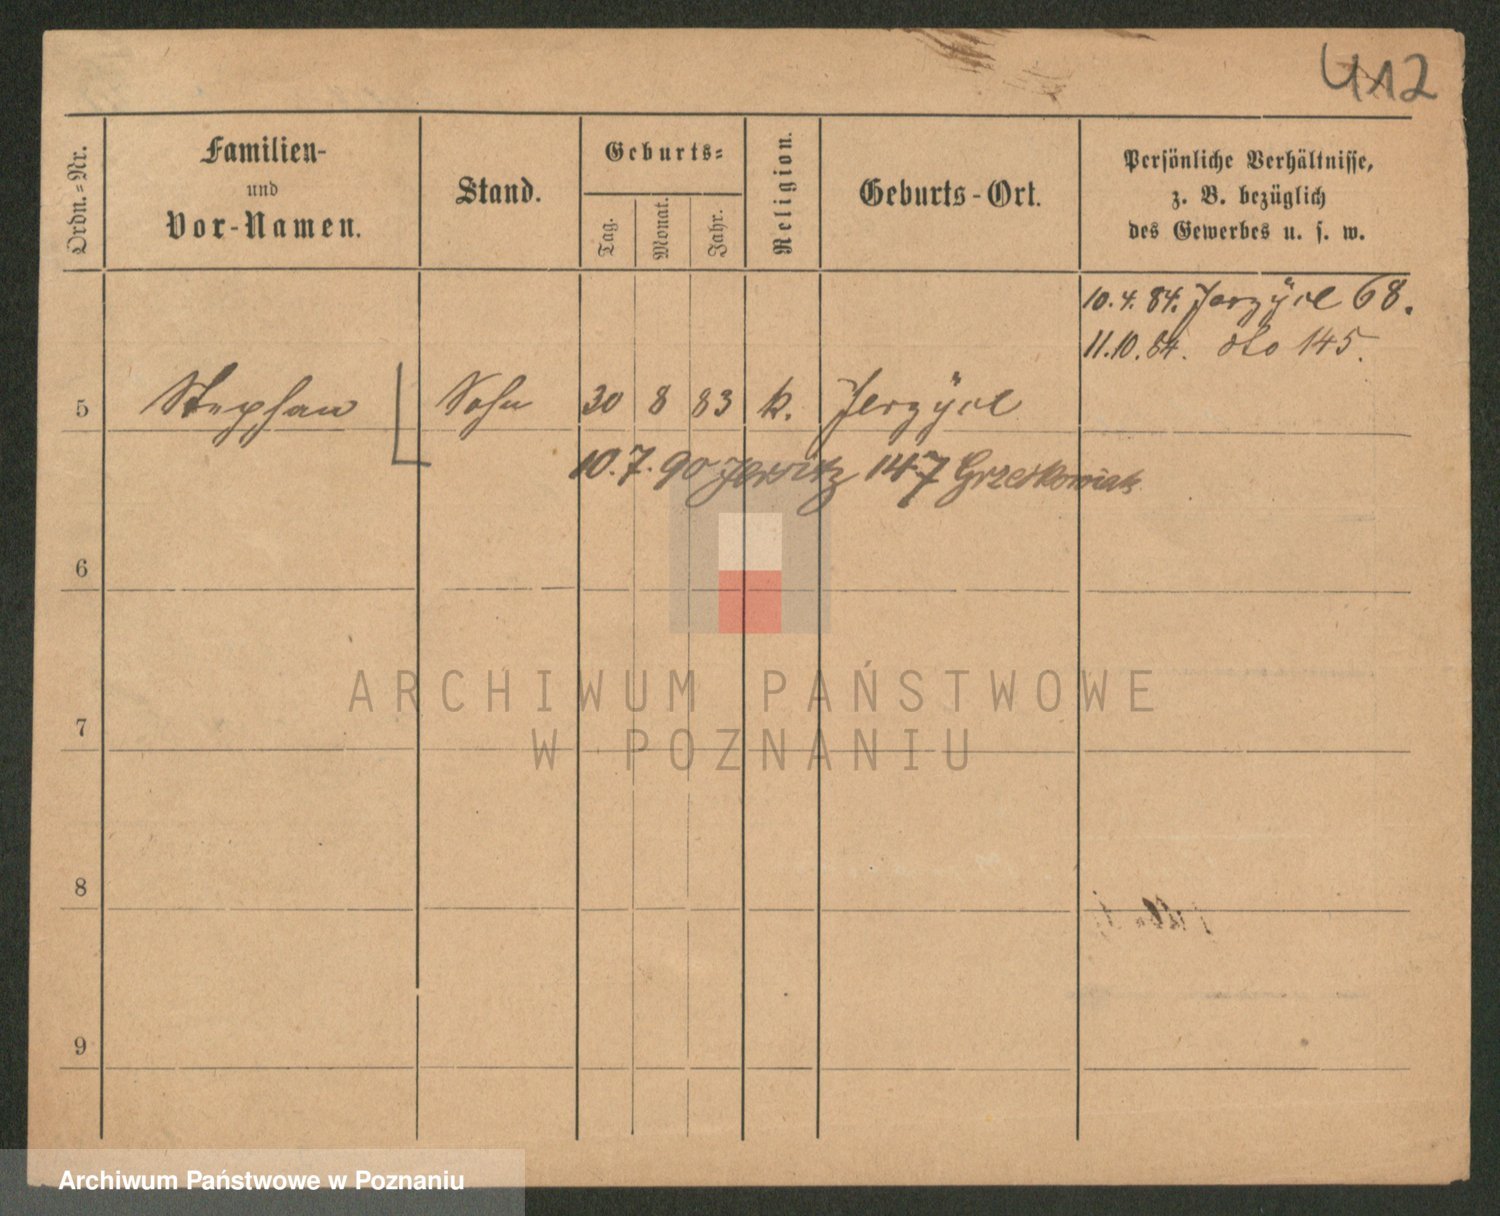 412
Ordn.-Nr.
Familien-
und
Vor-Namen.
Stand.
Geburts-
Tag.
Monat.
Jahr.
Religion.
Geburts-Ort.
Persönliche Verhältnisse,
z. B. bezüglich
des Gewerbes u. s. w.
10.4.84. Jerzyce 68.
11.10.84. dto 145.
5 Stephan Sohn 30 8 83 k. Jerzyce
10.7.90 Jersitz 147 Grzeskowiak
6
7
8
9
ARCHIWUM PAŃSTWOWE
W POZNANIU
Archiwum Państwowe w Poznaniu